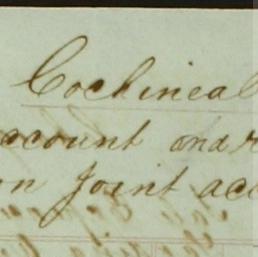 Cochineal
account and r
on Joint acc